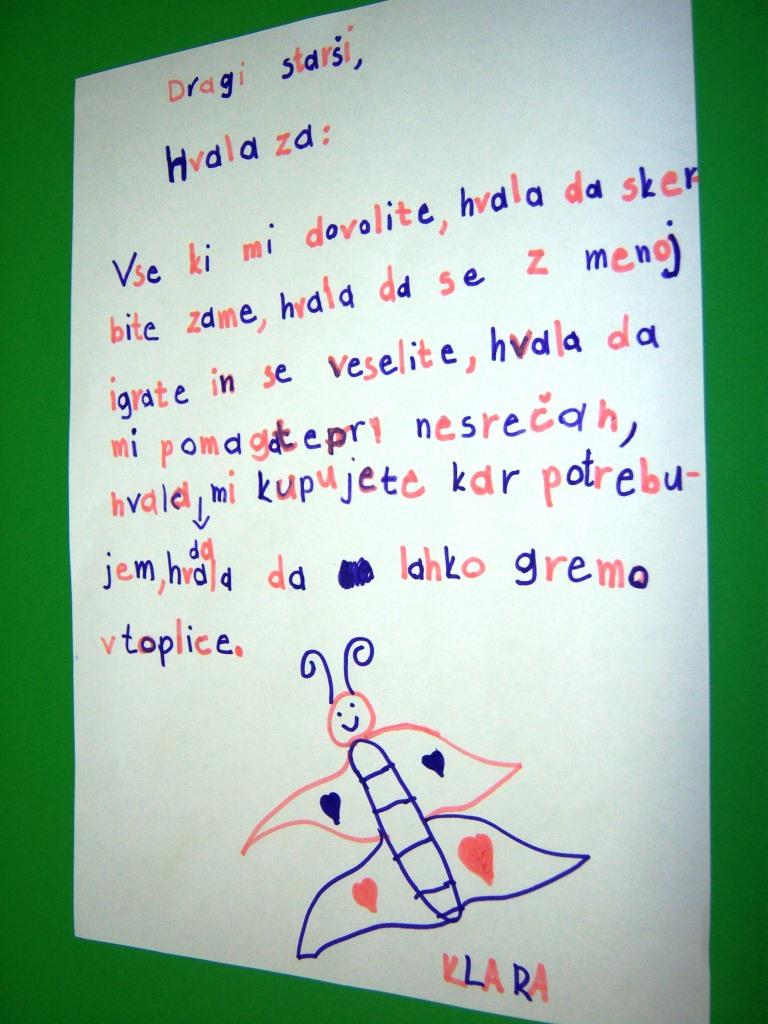 Dragi starši,
Hvala za:
Vse ki mi dovolite, hvala da sker-
bite zame, hvala da se z menoj
igrate in se veselite, hvala da
mi pomagate pri nesrečah,
hvala mi kupujete kar potrebu-
da
jem, hvala da lahko gremo
v toplice.
KLARA